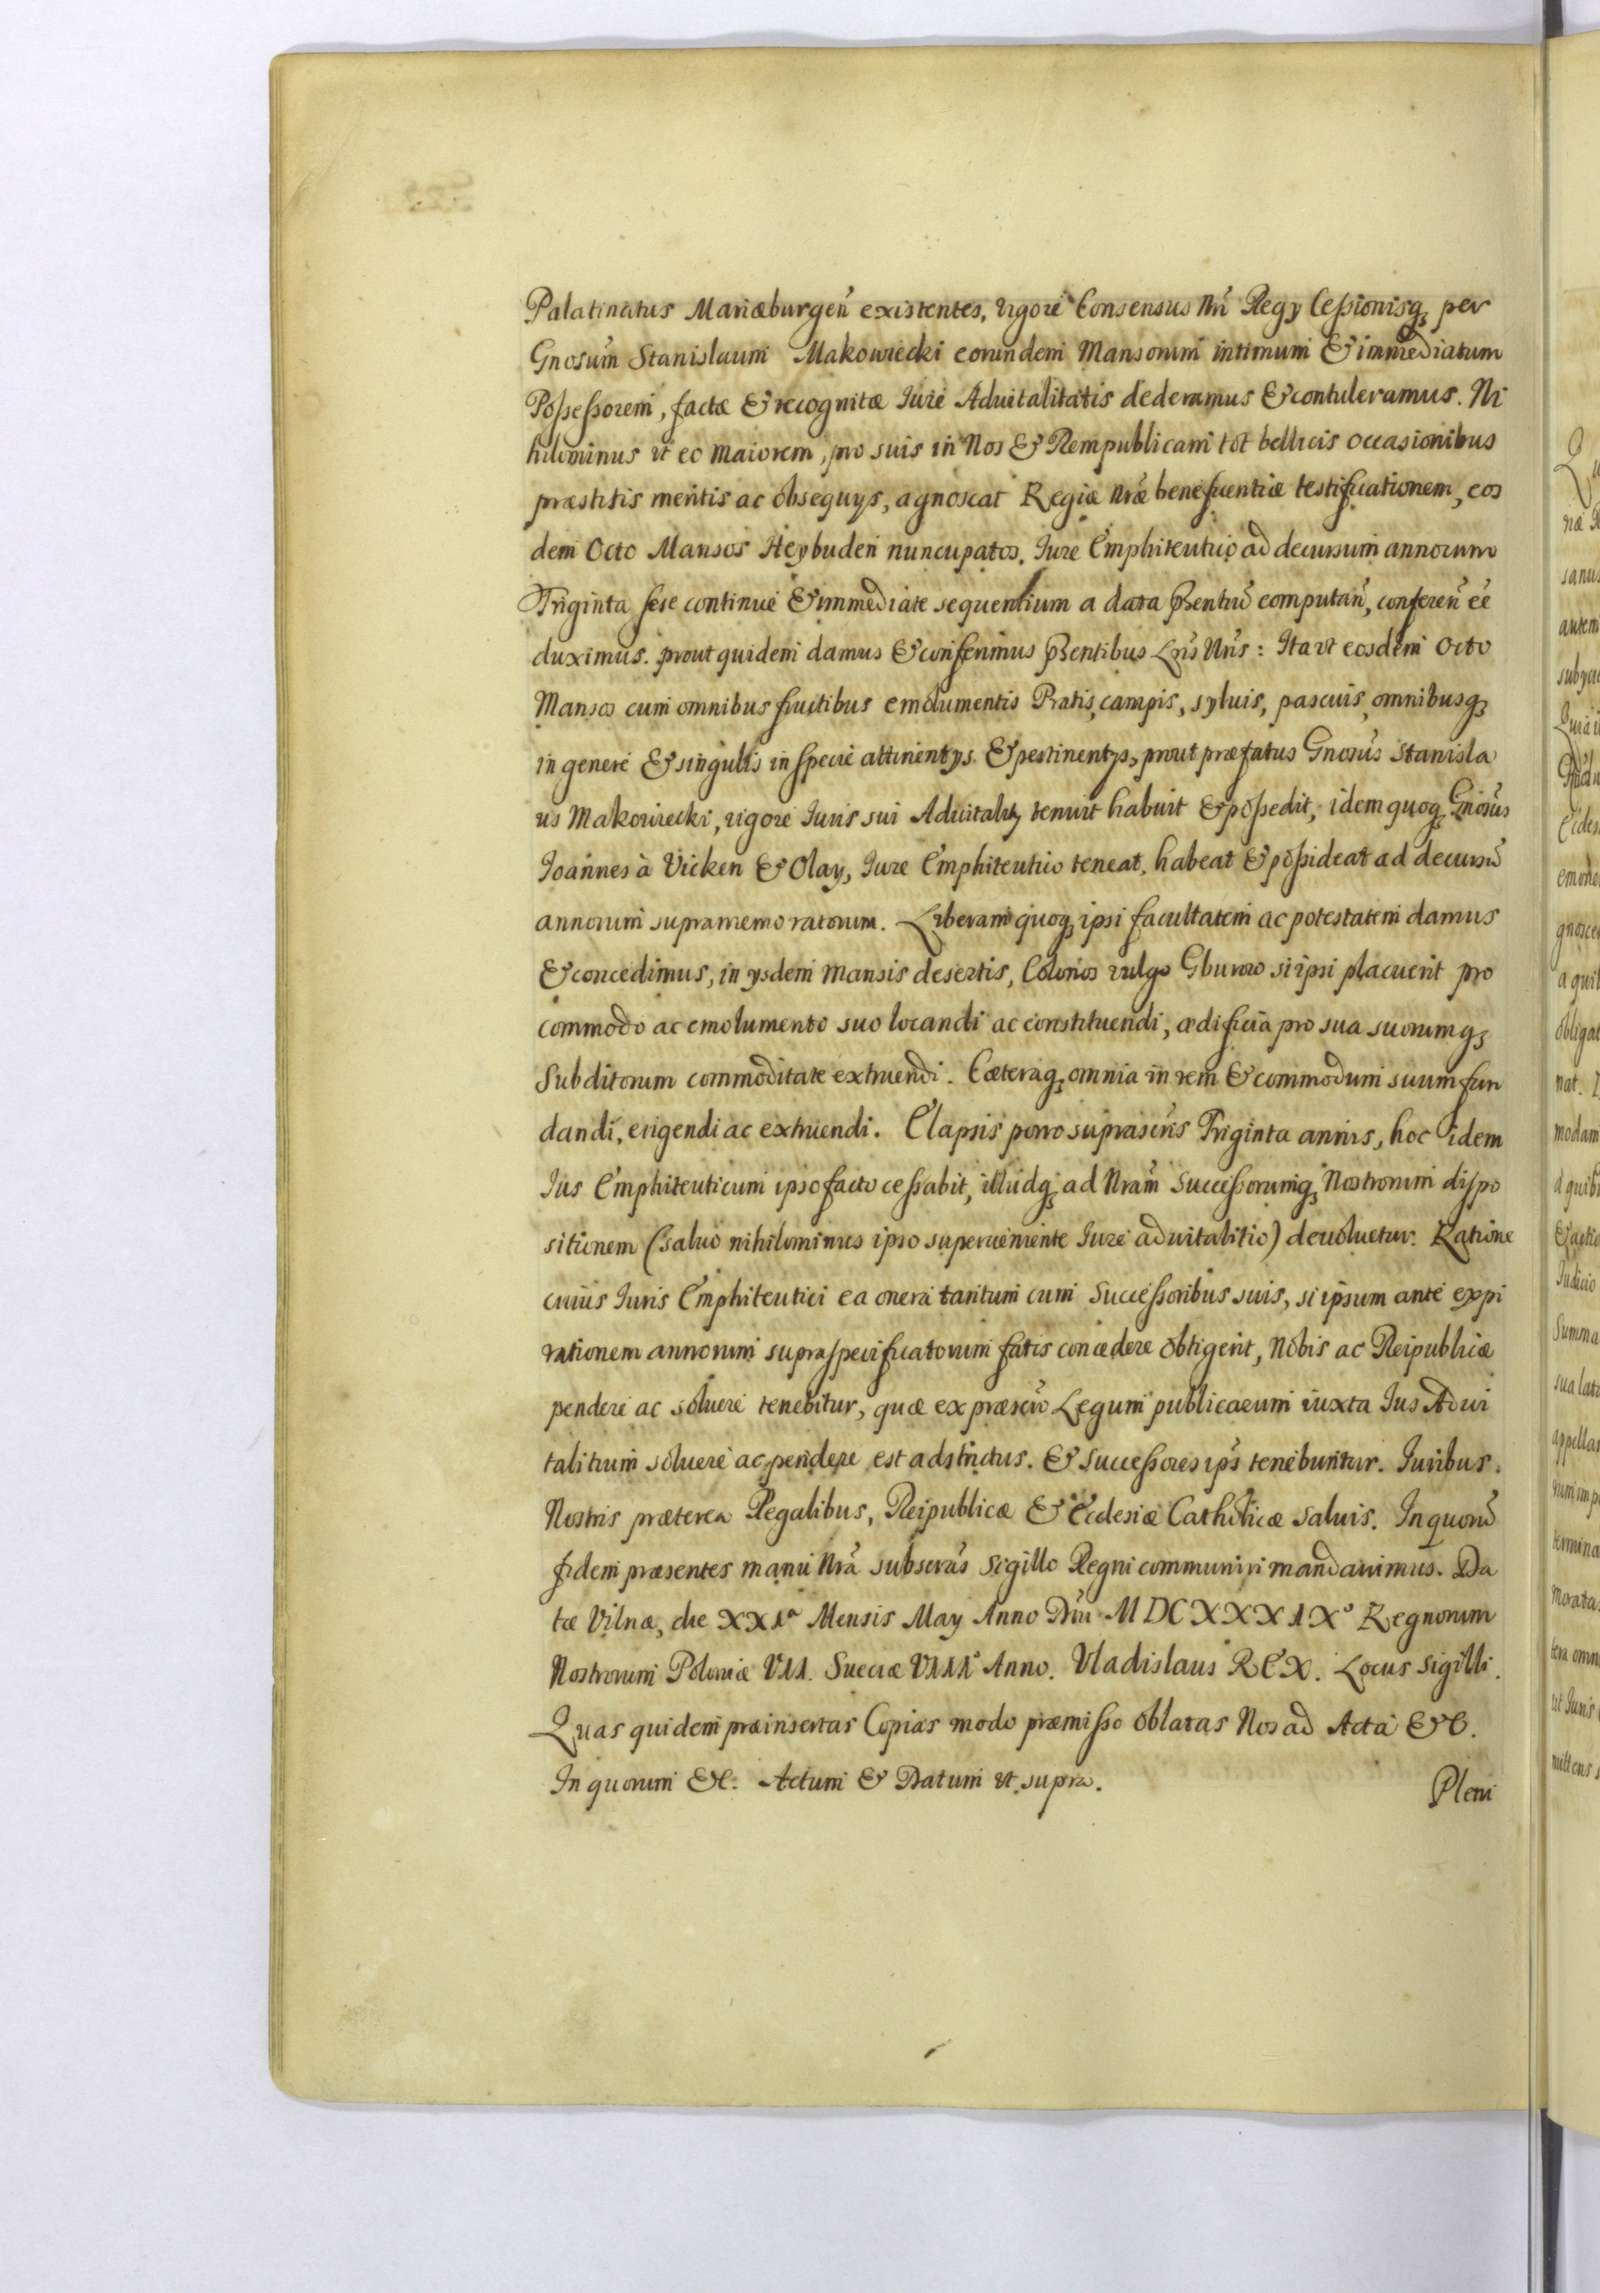 Palatinatus Mariæburgeñ existentes, vigore Consensus Nrĩ Regy Cessionisq₃ per
Gnosum̃ Stanislaum Makowiecki eorundem Mansorum intimum & immediatum
Possessorem, factæ & recognitæ Iure Aduitalitatis dederamus & contuleramus. Ni
hilominus vt eo maiorem, pro suis in Nos & Rempublicam tot bellicis occasionibus
præstitis meritis ac obsequys, agnoscat Regiæ Nrǽ beneficentiæ testificationem, eos
dem Octo Mansos Heybuden nuncupatos, Iure Emphiteutico ad decursum annorum
Triginta sese continue & immediate sequentium a data Pñsentiũ computañ, conferen̄ eẽ
duximus. prout quidem damus & conferimus Pñsentibus Lr̃is Nr̃is: Ita vt eosdem Octo
Mansos cum omnibus fructibus emolumentis Pratis, campis, syluis, pascuis, omnibusq₃
in genere & singulis in specie attinentys & pertinentys, prout præfatus Gnosus̃ Stanisla
us Makowiecki, vigore Iuris sui Aduitalitȝ tenuit habuit & possedit, idem quoq₃ Gnosus̃
Ioannes à Vicken & Olay, Iure Emphiteutico teneat, habeat & possideat ad decursũ
annorum supramemoratorum. Liberam quoq₃ ipsi facultatem ac potestatem damus
& concedimus, in ysdem mansis desertis, Colonos vulgo Gburow si ipsi placuerit pro
commodo ac emolumento suo locandi ac constituendi, ædificia pro sua suorumq₃
Subditorum commoditate extruendi. Cæteraq₃ omnia in rem & commodum suum fun
dandi, erigendi ac extruendi. Elapsis porro suprascr̃is Triginta annis, hoc idem
Ius Emphiteuticum ipso facto cessabit, illudq₃ ad Nram̃ Successorumq₃ Nostrorum dispo
sitionem (saluo nihilominus ipso superueniente Iure aduitalitio) deuoluetur. Ratione
cuius Iuris Emphiteutici ea onera tantum cum Successoribus suis, si ipsum ante expi
rationem annorum supraspecificatorum fatis concedere obtigerit, Nobis ac Reipublicæ
pendere ac soluere tenebitur, quæ ex præscr̃o Legum publicarum iuxta Ius Adui
talitium soluere ac pendere est adstrictus. & Successores ips̃ tenebuntur. Iuribus
Nostris præterea Regalibus, Reipublicæ & Ecclesiæ Catholicæ saluis. In quorũ
fidem præsentes manu Nrã subscrãs Sigillo Regni communiri mandauimus. Da
tæ Vilnæ, die XXIª Mensis May Anno Dñi MDCXXXIXº Regnorum
Nostrorum Poloniæ VII. Sueciæ VIIIº Anno. Vladislaus REX. Locus Sigilli.
Quas quidem præinsertas Copias modo præmisso oblatas Nos ad Acta &c.
In quorum &c. Actum & Datum vt supra.
Pleni